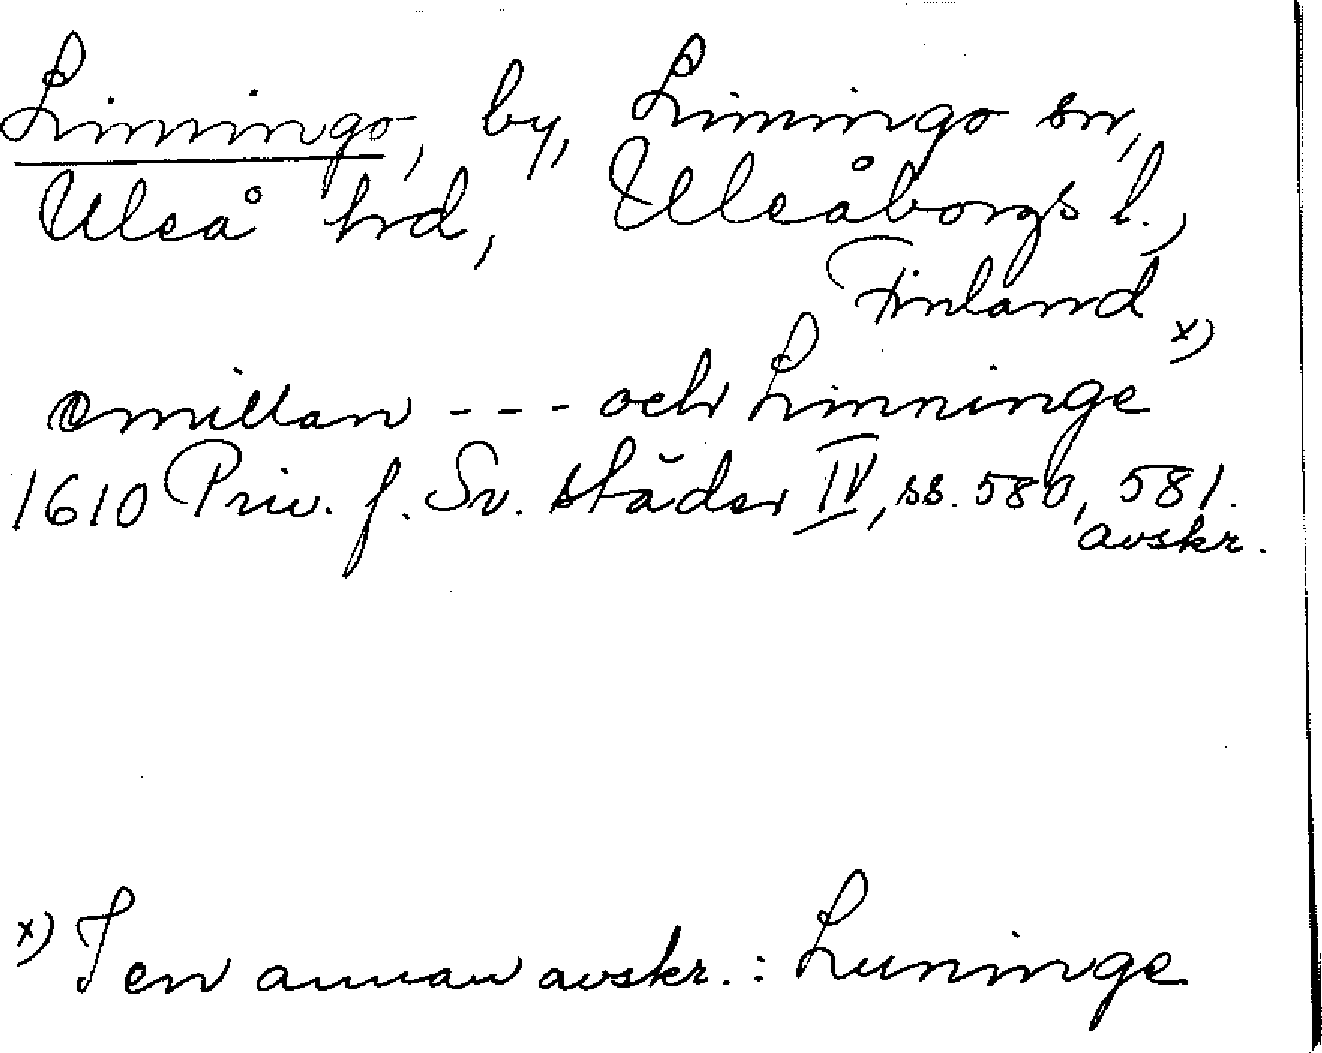 Limingo, by, Limingo sn,
Uleå hrd, Uleåborgs l.,
Finland
emillan - - - och Limninge x)
1610 Priv. f. Sv. städer IV, ss. 580, 581.
avskr.
x) I en annan avskr. : Luninge